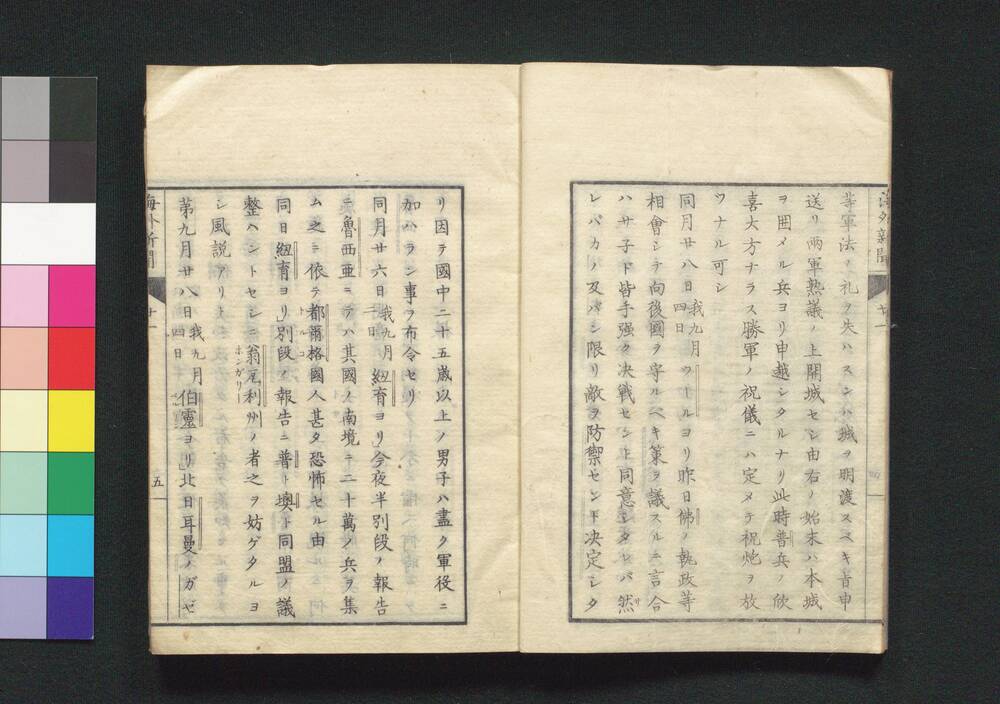 海外新聞 廿一 四
等軍法ノ礼ヲ失ハスンハ城ヲ明渡スベキ旨申
送リ両軍熟議ノ上開城セシ由右ノ始末ハ本城
ヲ囲メル兵ヨリ申越シタルナリ此時普兵ノ欣
喜大方ナラス勝軍ノ祝儀ニハ定メテ祝炮ヲ放
ツナル可シ
同月廿八日我九月四日ツールヨリ昨日佛ノ執政等
相會シテ向後國ヲ守ルベキ策ヲ議スルニ言合
ハサ子ド皆手強ク決戦セント同意シタレバ然
レバカノ及バン限リ敵ヲ防禦センヿ決定シタ
リ因ヲ國中二十五歳以上ノ男子ハ盡ク軍役ニ
加ハラン事ヲ布令セリ
同月廿六日我九月二日紐育ヨリ」今夜半別段ノ報告
ニ魯西亜ニテハ其國ノ南境ニ二十萬ノ兵ヲ集
ム之ニ依テ都爾格トルコ國人甚タ恐怖セル由
同日紐育ヨリ」別段ノ報告ニ普ト墺ト同盟ノ議
整ヘントセシニ翁尾利ホンガリー州ノ者之ヲ妨ゲタルヨ
シ風説アリ
第九月廿八日我九月四日伯靈ヨリ」北日耳曼ノガゼ
海外新聞 廿一 五